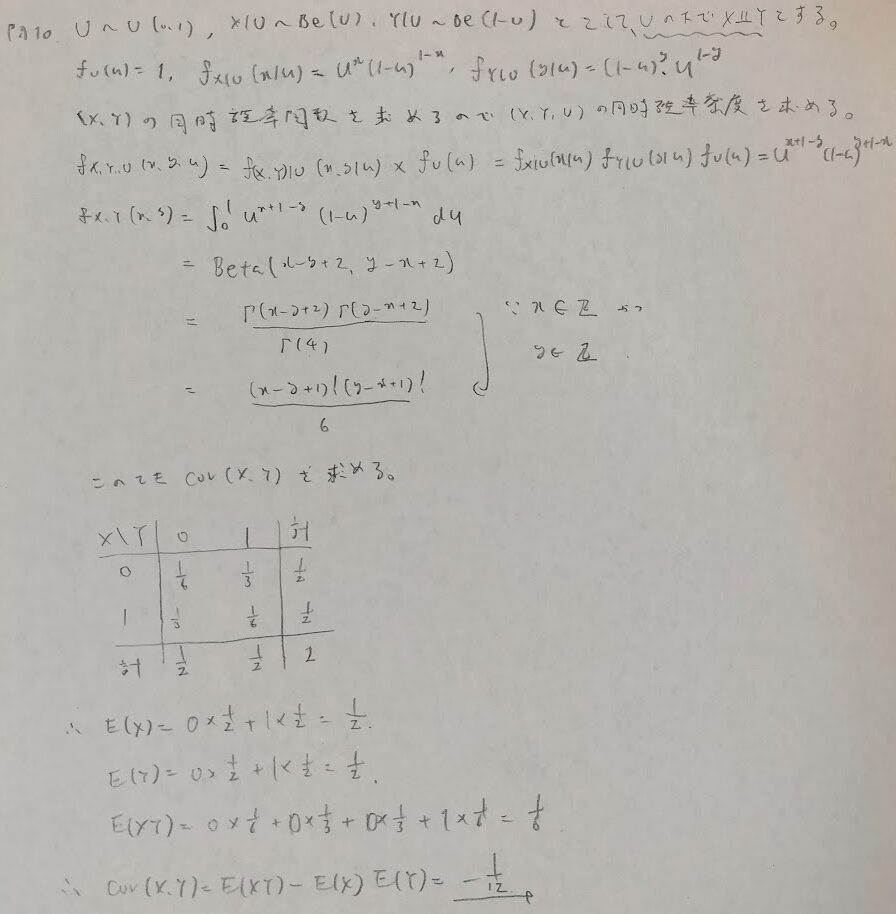 例10. U~U(0,1), X|U~Be(U). Y|U~Be(1-U) として、Uの下でX⫫Yとする。
f_U(u)=1, f_{X|U}(x|u)=u^x(1-u)^{1-x}, f_{Y|U}(y|u)=(1-u)^y・u^{1-y}
(X,Y)の同時確率関数を求めるので(X,Y,U)の同時確率密度を求める。
f_{X,Y,U}(x,y,u)=f_{(X,Y)|U}(x,y|u)×f_U(u)=f_{X|U}(x|u)f_{Y|U}(y|u)f_U(u)=u^{x+1-y}(1-u)^{y+1-x}
f_{X,Y}(x,y)=∫_0^1 u^{x+1-y}(1-u)^{y+1-x}du
=Beta(x-y+2, y-x+2)
=Γ(x-y+2)Γ(y-x+2)/Γ(4) ∵ x∈ℤ かつ
y∈ℤ.
=(x-y+1)!(y-x+1)!/6
このとき Cov(X,Y)を求める。
X\Y 0 1 計
0 1/6 1/3 1/2
1 1/3 1/6 1/2
計 1/2 1/2 2
∴ E(X)=0×1/2+1×1/2=1/2.
E(Y)=0×1/2+1×1/2=1/2.
E(XY)=0×1/6+0×1/3+0×1/3+1×1/6=1/6
∴ Cov(X,Y)=E(XY)-E(X)E(Y)=-1/12.